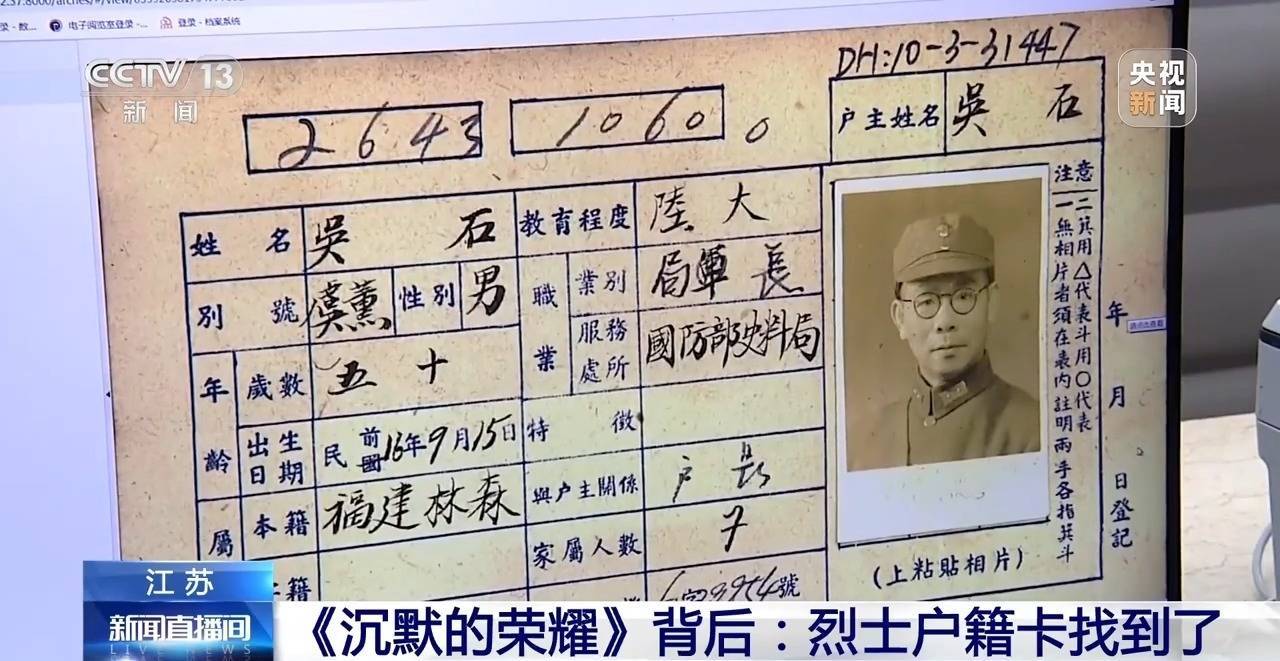 录 - 数...
电子阅览室登录 -...
登录 - 档案系统
CCTV 13
新闻
央视
新闻
DH:10-3-31447
2643 1060 0
户主姓名 吳石
姓名 吳石 教育程度 陸大
別號 虞薰 性別 男 職業 業別 局軍長
服務處所 國防部史料局
年齡 歲數 五十
出生日期 民國前16年9月15日 特徵
屬 本籍 福建林森 與户主關係 户長
家屬人數 7
籍
號
注意
一無相片者須在表內註明兩手各指箕斗
二箕用△代表斗用○代表
年月日登記
(上粘貼相片)
江苏
新闻直播间
《沉默的荣耀》背后:烈士户籍卡找到了